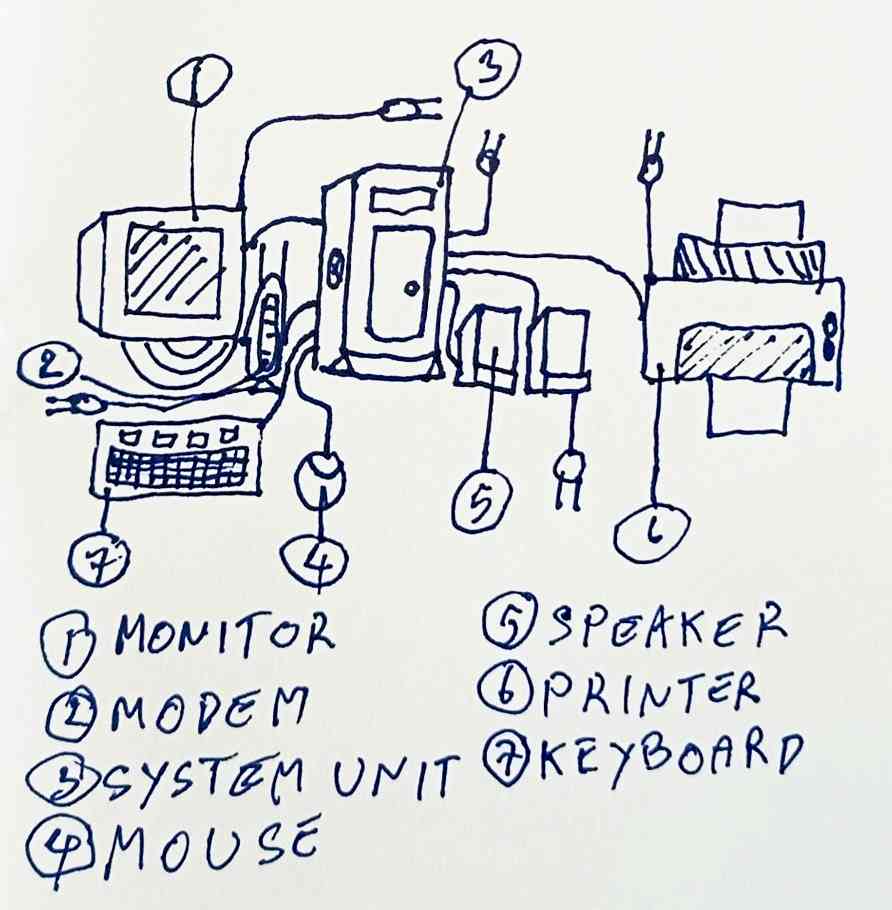 1
3
2
7
4
5
6
① MONITOR
② MODEM
③ SYSTEM UNIT
④ MOUSE
⑤ SPEAKER
⑥ PRINTER
⑦ KEYBOARD